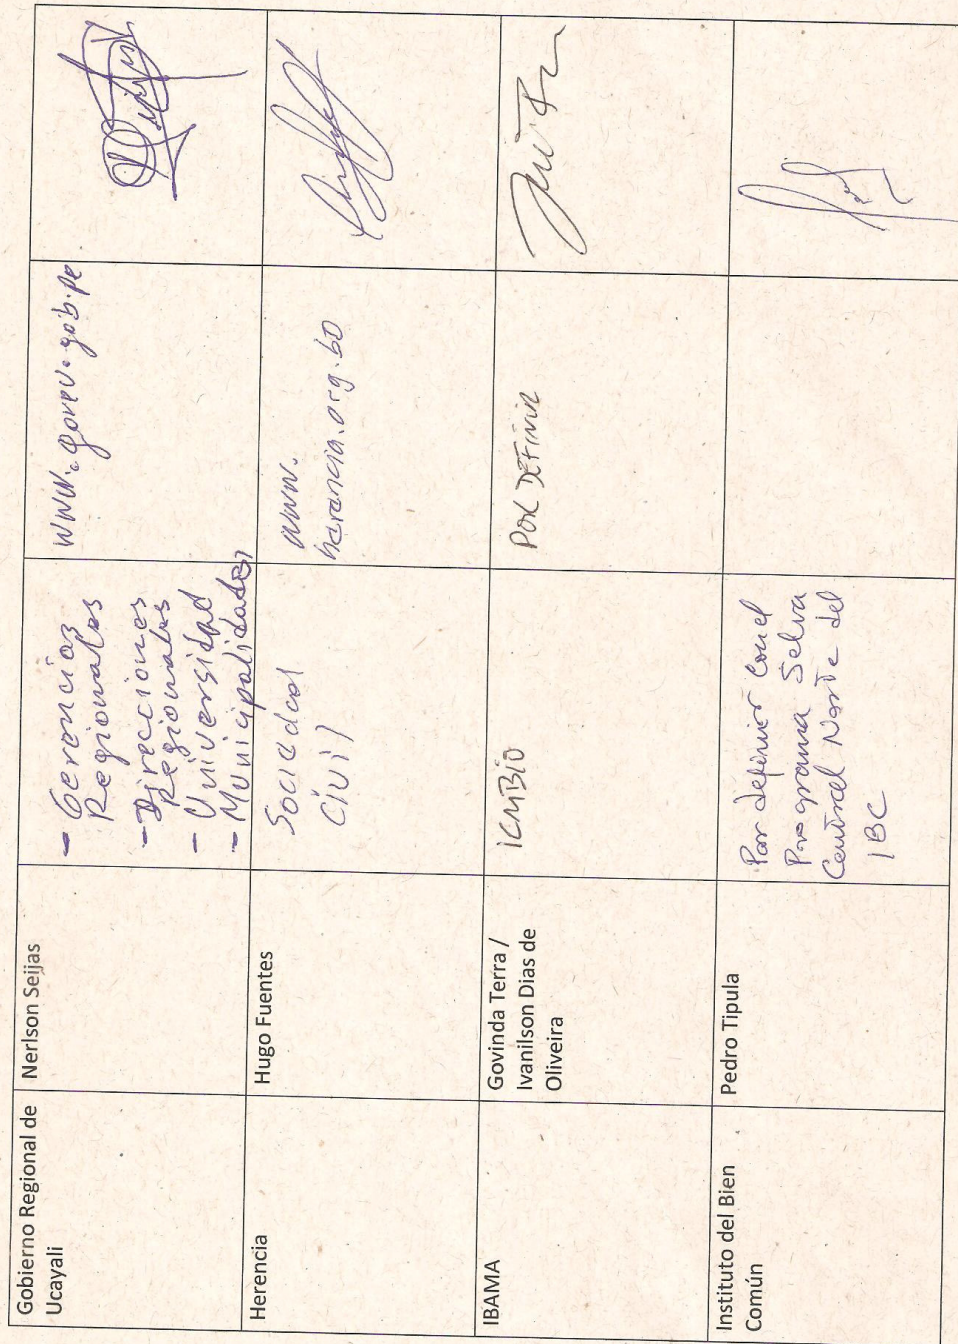 Gobierno Regional de
Ucayali
Nerlson Seijas
- Gerencias
Regionales
- Direcciones
Regionales
- Universidad
- Municipalidades
www.goreu.gob.pe
Herencia
Hugo Fuentes
Sociedad
Civil
www.
herencia.org.bo
IBAMA
Govinda Terra /
Ivanilson Dias de
Oliveira
ICMBIO
POR DEFINIR
Instituto del Bien
Común
Pedro Tipula
Por definir con el
Programa Selva
Central Norte del
IBC